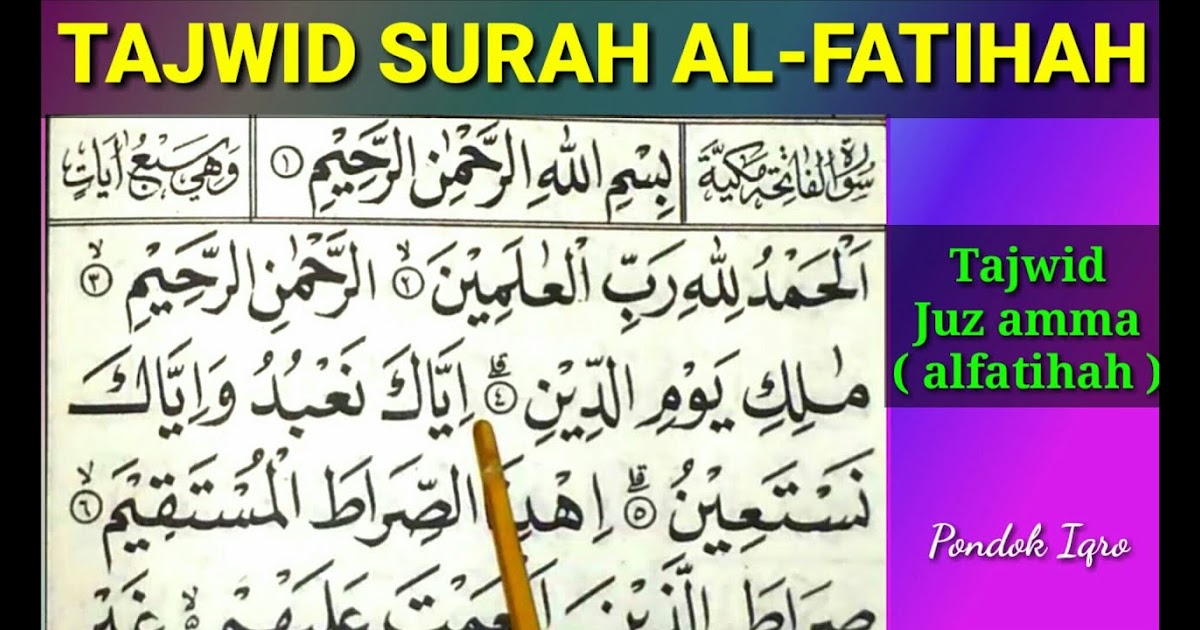 TAJWID SURAH AL-FATIHAH
سُوْرَةُ الْفَاتِحَةِ مَكِّيَّةٌ
بِسْمِ اللهِ الرَّحْمٰنِ الرَّحِيْمِ ١
وَهِيَ سَبْعُ اٰيَاتٍ
اَلْحَمْدُ لِلّٰهِ رَبِّ الْعٰلَمِيْنَ ٢ۙ الرَّحْمٰنِ الرَّحِيْمِ ٣ۙ
مٰلِكِ يَوْمِ الدِّيْنِ ٤ۗ اِيَّاكَ نَعْبُدُ وَاِيَّاكَ
نَسْتَعِيْنُ ٥ۗ الصِّرَاطَ الْمُسْتَقِيْمَ ٦ۙ
صِرَاطَ الَّذِيْنَ عَلَيْهِمْ غَيْرِ
Tajwid
Juz amma
( alfatihah )
Pondok Iqro